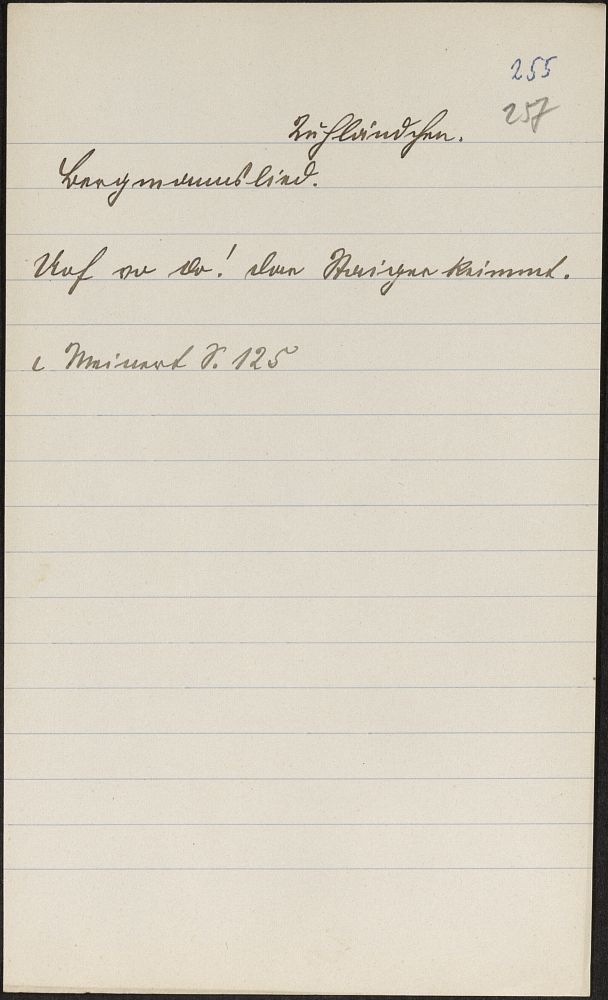 255
257
Kuhländchen.
Bergmannslied.
Uof do! Steiger keimmt.
c Meinert S. 125